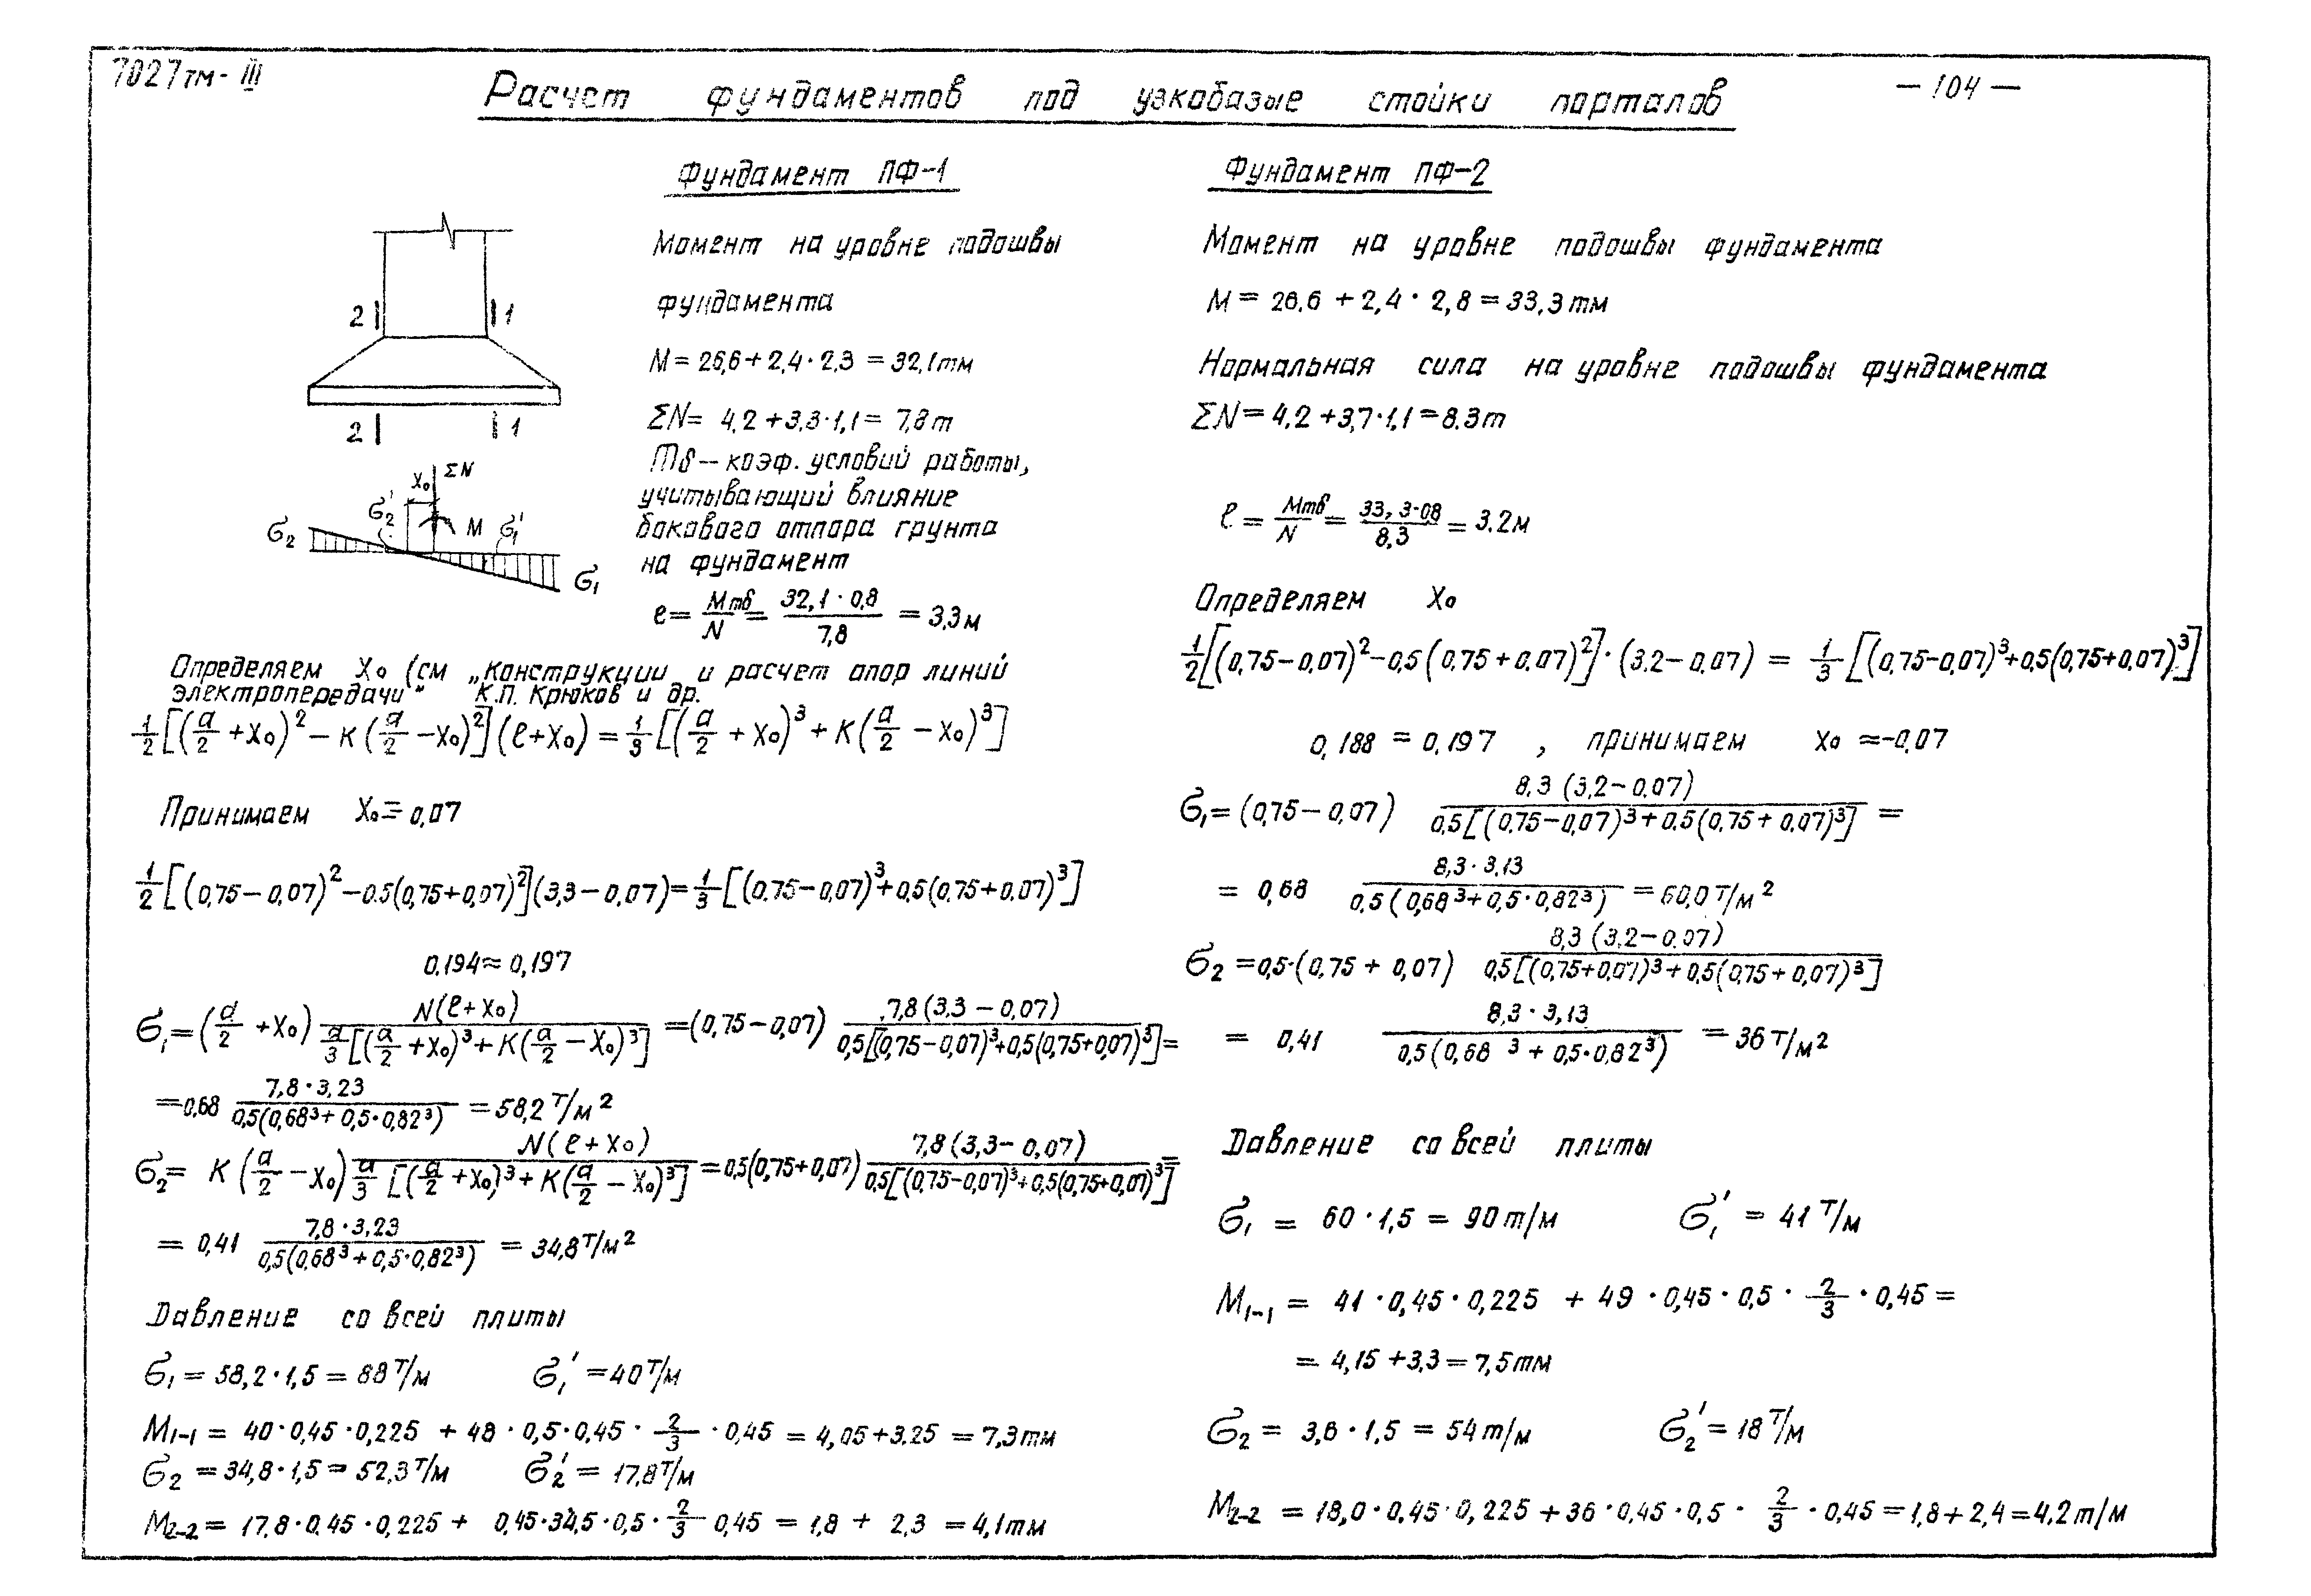 7027тм-III
Расчет фундаментов под узкобазые стойки порталов
— 104 —
Фундамент ПФ-1
Момент на уровне подошвы
фундамента
M = 26,6 + 2,4 · 2,3 = 32,1тм
ΣN = 4,2 + 3,3 · 1,1 = 7,8т
mб – коэф. условий работы,
учитывающий влияние
бокового отпора грунта
на фундамент
e = Mmб/N = 32,1 · 0,8/7,8 = 3,3м
2 1
2 1
X₀ ΣN
σ₂ σ₂' M σ₁' σ₁
Определяем X₀ (см „Конструкции и расчет опор линий
электропередачи“ К.П. Крюков и др.
1/2[(a/2 + X₀)² – K(a/2 – X₀)²](e + X₀) = 1/3[(a/2 + X₀)³ + K(a/2 – X₀)³]
Принимаем X₀ = 0,07
1/2[(0,75 – 0,07)² – 0.5(0,75 + 0,07)²](3,3 – 0,07) = 1/3[(0.75 – 0,07)³ + 0,5(0,75 + 0.07)³]
0.194 ≈ 0,197
σ₁ = (a/2 + X₀) N(e + X₀)/a/3[(a/2 + X₀)³ + K(a/2 – X₀)³] = (0,75 – 0,07) 7,8(3,3 – 0,07)/0,5[(0,75 – 0,07)³ + 0,5(0,75 + 0,07)³] =
= 0,68 7,8 · 3,23/0,5(0,68³ + 0,5 · 0,82³) = 58,2 т/м²
σ₂ = K(a/2 – X₀) N(e + X₀)/a/3[(a/2 + X₀)³ + K(a/2 – X₀)³] = 0,5(0,75 + 0,07) 7,8(3,3 – 0,07)/0,5[(0,75 – 0,07)³ + 0,5(0,75 + 0,07)³] =
= 0,41 7,8 · 3,23/0,5(0,68³ + 0,5 · 0,82³) = 34,8 т/м²
Давление со всей плиты
σ₁ = 58,2 · 1,5 = 88 т/м σ₁' = 40 т/м
M₁₋₁ = 40 · 0,45 · 0,225 + 48 · 0,5 · 0,45 · 2/3 · 0,45 = 4,05 + 3.25 = 7,3тм
σ₂ = 34,8 · 1,5 = 52,3 т/м σ₂' = 17,8 т/м
M₂₋₂ = 17,8 · 0.45 · 0,225 + 0,45 · 34,5 · 0,5 · 2/3 0,45 = 1,8 + 2,3 = 4,1тм
Фундамент ПФ-2
Момент на уровне подошвы фундамента
M = 26.6 + 2,4 · 2,8 = 33,3тм
Нормальная сила на уровне подошвы фундамента
ΣN = 4,2 + 3,7 · 1,1 = 8.3т
e = Mmб/N = 33,3 · 08/8,3 = 3.2м
Определяем X₀
1/2[(0,75 – 0,07)² – 0,5(0,75 + 0.07)²] · (3.2 – 0,07) = 1/3[(0,75 – 0,07)³ + 0,5(0,75 + 0,07)³]
0,188 = 0,197 , принимаем X₀ ≈ –0,07
σ₁ = (0,75 – 0,07) 8,3(3,2 – 0,07)/0,5[(0,75 – 0,07)³ + 0.5(0,75 + 0,07)³] =
= 0,68 8,3 · 3,13/0,5(0,68³ + 0,5 · 0,82³) = 60,0 т/м²
σ₂ = 0,5 · (0,75 + 0,07) 8,3(3,2 – 0.07)/0,5[(0,75 + 0,07)³ + 0,5(0,75 + 0,07)³]
= 0,41 8,3 · 3,13/0,5(0,68³ + 0,5 · 0,82³) = 36 т/м²
Давление со всей плиты
σ₁ = 60 · 1,5 = 90 т/м σ₁' = 41 т/м
M₁₋₁ = 41 · 0,45 · 0,225 + 49 · 0,45 · 0,5 · 2/3 · 0,45 =
= 4,15 + 3,3 = 7,5тм
σ₂ = 3,6 · 1,5 = 54 т/м σ₂' = 18 т/м
M₂₋₂ = 18,0 · 0,45 · 0,225 + 36 · 0,45 · 0,5 · 2/3 · 0,45 = 1,8 + 2,4 = 4,2 т/м